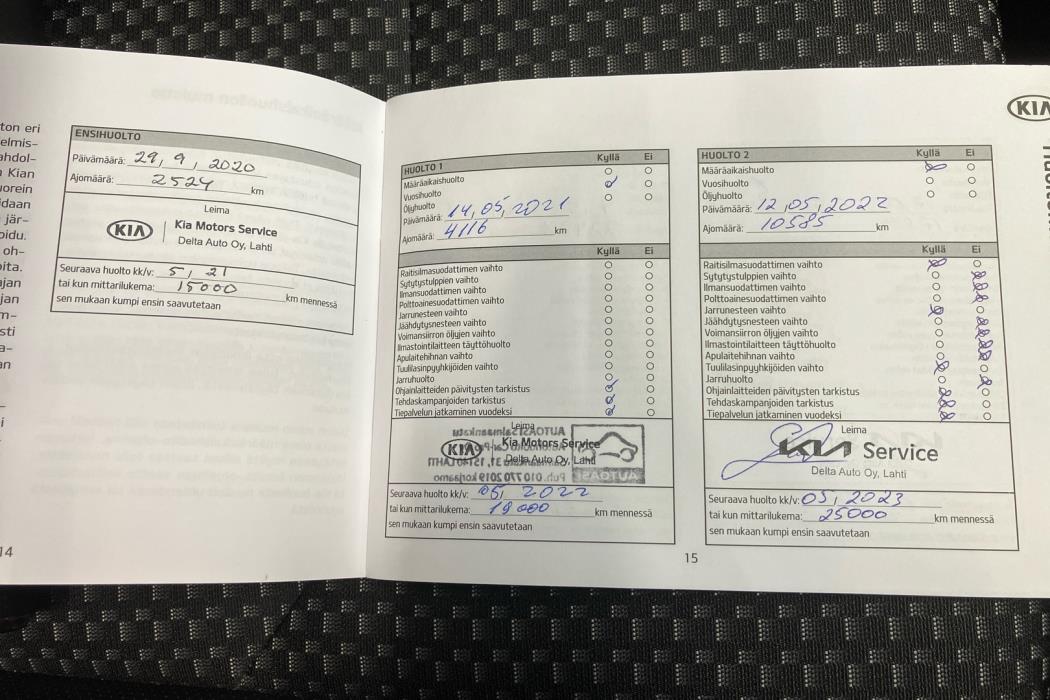 ton eri
elmis-
ahdol-
Kian
uorein
idaan
jär-
oidu.
oh-
oita.
ajan
jan
m-
sti
a-
an
i
14
ENSIHUOLTO
Päivämäärä: 29, 9, 2020
Ajomäärä: 2524 km
Leima
KIA Kia Motors Service
Delta Auto Oy, Lahti
Seuraava huolto kk/v: 5, 21
tai kun mittarilukema: 15000 km mennessä
sen mukaan kumpi ensin saavutetaan
HUOLTO 1 Kyllä Ei
Määräaikaishuolto
Vuosihuolto
Öljyhuolto
Päivämäärä: 14, 05, 2021
Ajomäärä: 4116 km
Kyllä Ei
Raitisilmasuodattimen vaihto
Sytytystulppien vaihto
Ilmansuodattimen vaihto
Polttoainesuodattimen vaihto
Jarrunesteen vaihto
Jäähdytysnesteen vaihto
Voimansiirron öljyjen vaihto
Ilmastointilaitteen täyttöhuolto
Apulaitehihnan vaihto
Tuulilasinpyyhkijöiden vaihto
Jarruhuolto
Ohjainlaitteiden päivitysten tarkistus
Tehdaskampanjoiden tarkistus
Tiepalvelun jatkaminen vuodeksi
Leima
KIA Kia Motors Service
Delta Auto Oy, Lahti
Seuraava huolto kk/v: 05, 2022
tai kun mittarilukema: 19000 km mennessä
sen mukaan kumpi ensin saavutetaan
KIA
HUOLTO 2 Kyllä Ei
Määräaikaishuolto
Vuosihuolto
Öljyhuolto
Päivämäärä: 12, 05, 2022
Ajomäärä: 10585 km
Kyllä Ei
Raitisilmasuodattimen vaihto
Sytytystulppien vaihto
Ilmansuodattimen vaihto
Polttoainesuodattimen vaihto
Jarrunesteen vaihto
Jäähdytysnesteen vaihto
Voimansiirron öljyjen vaihto
Ilmastointilaitteen täyttöhuolto
Apulaitehihnan vaihto
Tuulilasinpyyhkijöiden vaihto
Jarruhuolto
Ohjainlaitteiden päivitysten tarkistus
Tehdaskampanjoiden tarkistus
Tiepalvelun jatkaminen vuodeksi
Leima
KIA Service
Delta Auto Oy, Lahti
Seuraava huolto kk/v: 05, 2023
tai kun mittarilukema: 25000 km mennessä
sen mukaan kumpi ensin saavutetaan
15